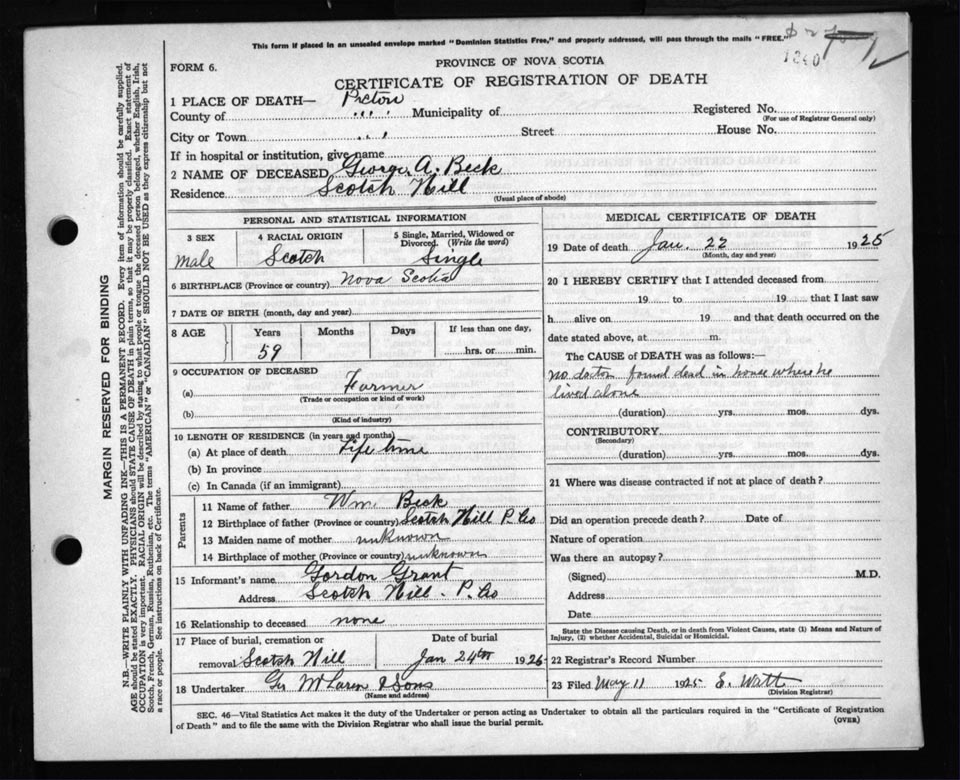 This form if placed in an unsealed envelope marked "Dominion Statistics Free," and properly addressed, will pass through the mails "FREE."
1240
FORM 6.
PROVINCE OF NOVA SCOTIA
CERTIFICATE OF REGISTRATION OF DEATH
1 PLACE OF DEATH— Pictou
County of " " Municipality of Registered No.
(For use of Registrar General only)
City or Town " " Street House No.
If in hospital or institution, give name
2 NAME OF DECEASED George A. Beck
Residence Scotch Hill
(Usual place of abode)
PERSONAL AND STATISTICAL INFORMATION
3 SEX 4 RACIAL ORIGIN 5 Single, Married, Widowed or Divorced. (Write the word)
male Scotch Single
6 BIRTHPLACE (Province or country) Nova Scotia
7 DATE OF BIRTH (month, day and year)
8 AGE Years Months Days If less than one day,
59 hrs. or min.
9 OCCUPATION OF DECEASED
(a) Farmer
(Trade or occupation or kind of work)
(b)
(Kind of industry)
10 LENGTH OF RESIDENCE (in years and months)
(a) At place of death Life time
(b) In province
(c) In Canada (if an immigrant)
Parents
11 Name of father Wm. Beck
12 Birthplace of father (Province or country) Scotch Hill P. Co
13 Maiden name of mother unknown
14 Birthplace of mother (Province or country) unknown
15 Informant's name Gordon Grant
Address Scotch Hill - P. Co
16 Relationship to deceased none
17 Place of burial, cremation or Date of burial
removal Scotch Hill Jan 24th 1925
18 Undertaker Geo McLaren & Sons
(Name and address)
MEDICAL CERTIFICATE OF DEATH
19 Date of death Jan. 22 1925
(Month, day and year)
20 I HEREBY CERTIFY that I attended deceased from
19 to 19 that I last saw
h alive on 19 and that death occurred on the
date stated above, at m.
The CAUSE of DEATH was as follows:—
no doctor found dead in house where he
lived alone
(duration) yrs. mos. dys.
CONTRIBUTORY
(Secondary)
(duration) yrs. mos. dys.
21 Where was disease contracted if not at place of death?
Did an operation precede death? Date of
Nature of operation
Was there an autopsy?
(Signed) M.D.
Address
Date
State the Disease causing Death, or in death from Violent Causes, state (1) Means and Nature of
Injury, (2) whether Accidental, Suicidal or Homicidal.
22 Registrar's Record Number
23 Filed May 11 1925 E. Watt
(Division Registrar)
SEC. 46—Vital Statistics Act makes it the duty of the Undertaker or person acting as Undertaker to obtain all the particulars required in the "Certificate of Registration
of Death" and to file the same with the Division Registrar who shall issue the burial permit.
(OVER)
MARGIN RESERVED FOR BINDING
N.B.—WRITE PLAINLY WITH UNFADING INK—THIS IS A PERMANENT RECORD. Every item of information should be carefully supplied.
AGE should be stated EXACTLY. PHYSICIANS should STATE CAUSE OF DEATH in plain terms, so that it may be properly classified. Exact statement of
OCCUPATION is very important. RACIAL ORIGIN will be described by stating to what people or tongue the deceased person belonged, whether English, Irish,
Scotch, French, German, Russian, Ruthenian, etc. The terms "AMERICAN" or "CANADIAN" SHOULD NOT BE USED as they express citizenship but not
a race or people. See instructions on back of Certificate.